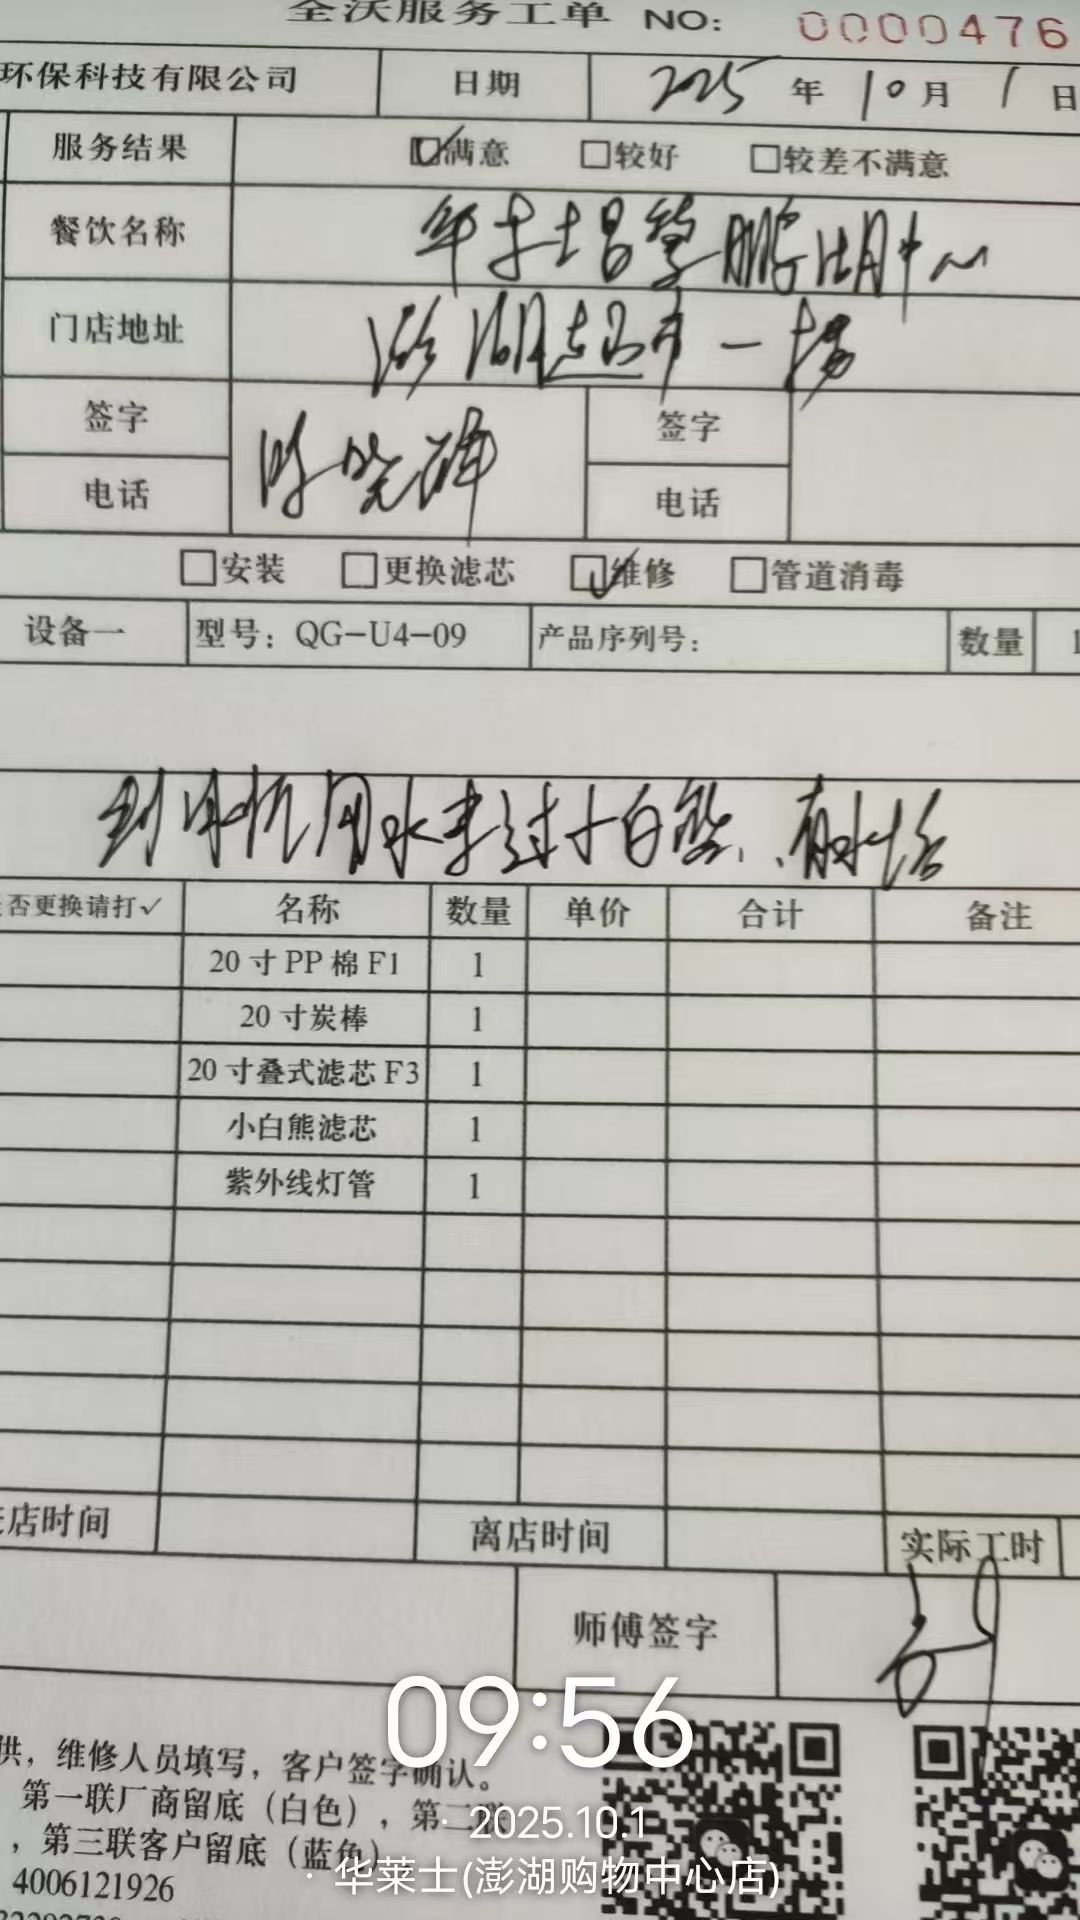 全沃服务工单 NO: 0000476
环保科技有限公司 日期 2025 年 10 月 1 日
服务结果 ☑满意 □较好 □较差不满意
餐饮名称 湖中心
门店地址 澎湖超市一楼
签字 陈晓锋 签字
电话 电话
□安装 □更换滤芯 ☑维修 □管道消毒
设备一 型号: QG-U4-09 产品序列号: 数量 1
用水 过小白熊
否更换请打✓ 名称 数量 单价 合计 备注
20 寸 PP 棉 F1 1
20 寸炭棒 1
20 寸叠式滤芯 F3 1
小白熊滤芯 1
紫外线灯管 1
店时间 离店时间 实际工时
师傅签字
供，维修人员填写，客户签字确认。
第一联厂商留底（白色），第二联
，第三联客户留底（蓝色）
4006121926
09:56
· 2025.10.1
· 华莱士(澎湖购物中心店)